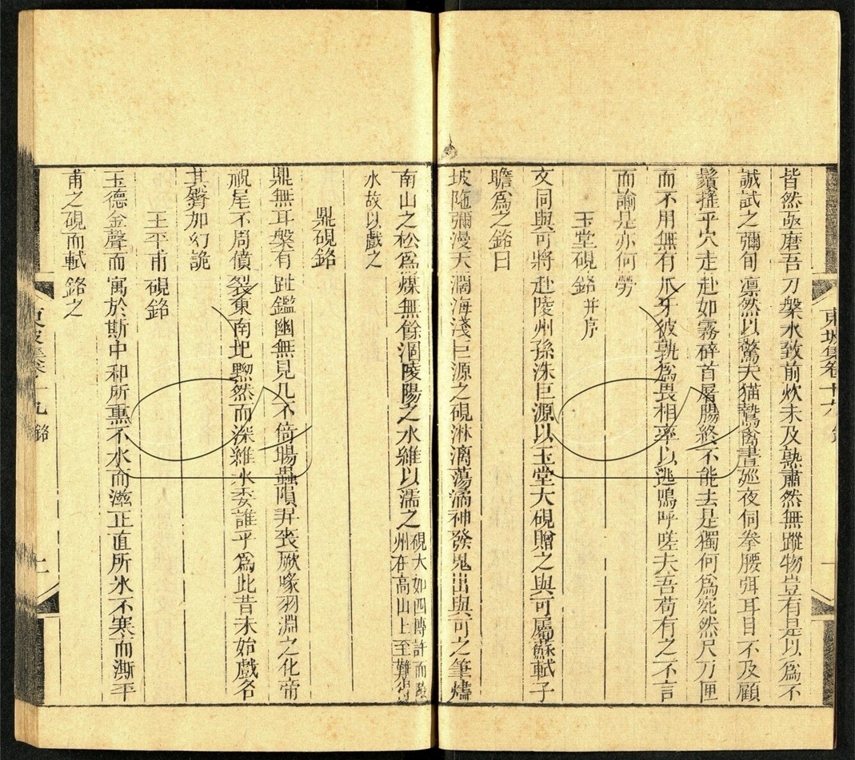 皆然亟磨吾刀槃水致前炊未及熟肅然無蹤物豈有是以為不
誠試之彌旬凛然以驚夫猫鷙禽晝廵夜伺拳腰弭耳目不及顧
鬚搖乎穴走赴如霧碎首屠腸終不能去是獨何為宛然尺刀匣
而不用無有爪牙彼孰為畏相率以逃嗚呼嗟夫吾苟有之不言
而諭是亦何勞
玉堂硯銘并序
文同與可將赴陵州孫洙巨源以玉堂大硯贈之與可屬蘇軾子
瞻為之銘曰
坡陁彌漫天濶海淺巨源之硯淋漓蕩潏神發鬼出與可之筆燼
南山之松為煤無餘涸陵陽之水維以濡之硯大如四塼許而陵州在高山上至難得
水故以戲之
鼎硯銘
鼎無耳槃有趾鑑幽無見几不倚暘蟲隕羿喪厥喙羽淵之化帝
祝尾不周僨裂東南圯黝然而深維水委誰乎為此昔未始戲名
其臠加幻詭
王平甫硯銘
玉德金聲而寓於斯中和所熏不水而滋正直所冰不寒而澌平
甫之硯而軾銘之
東坡集卷十九 銘